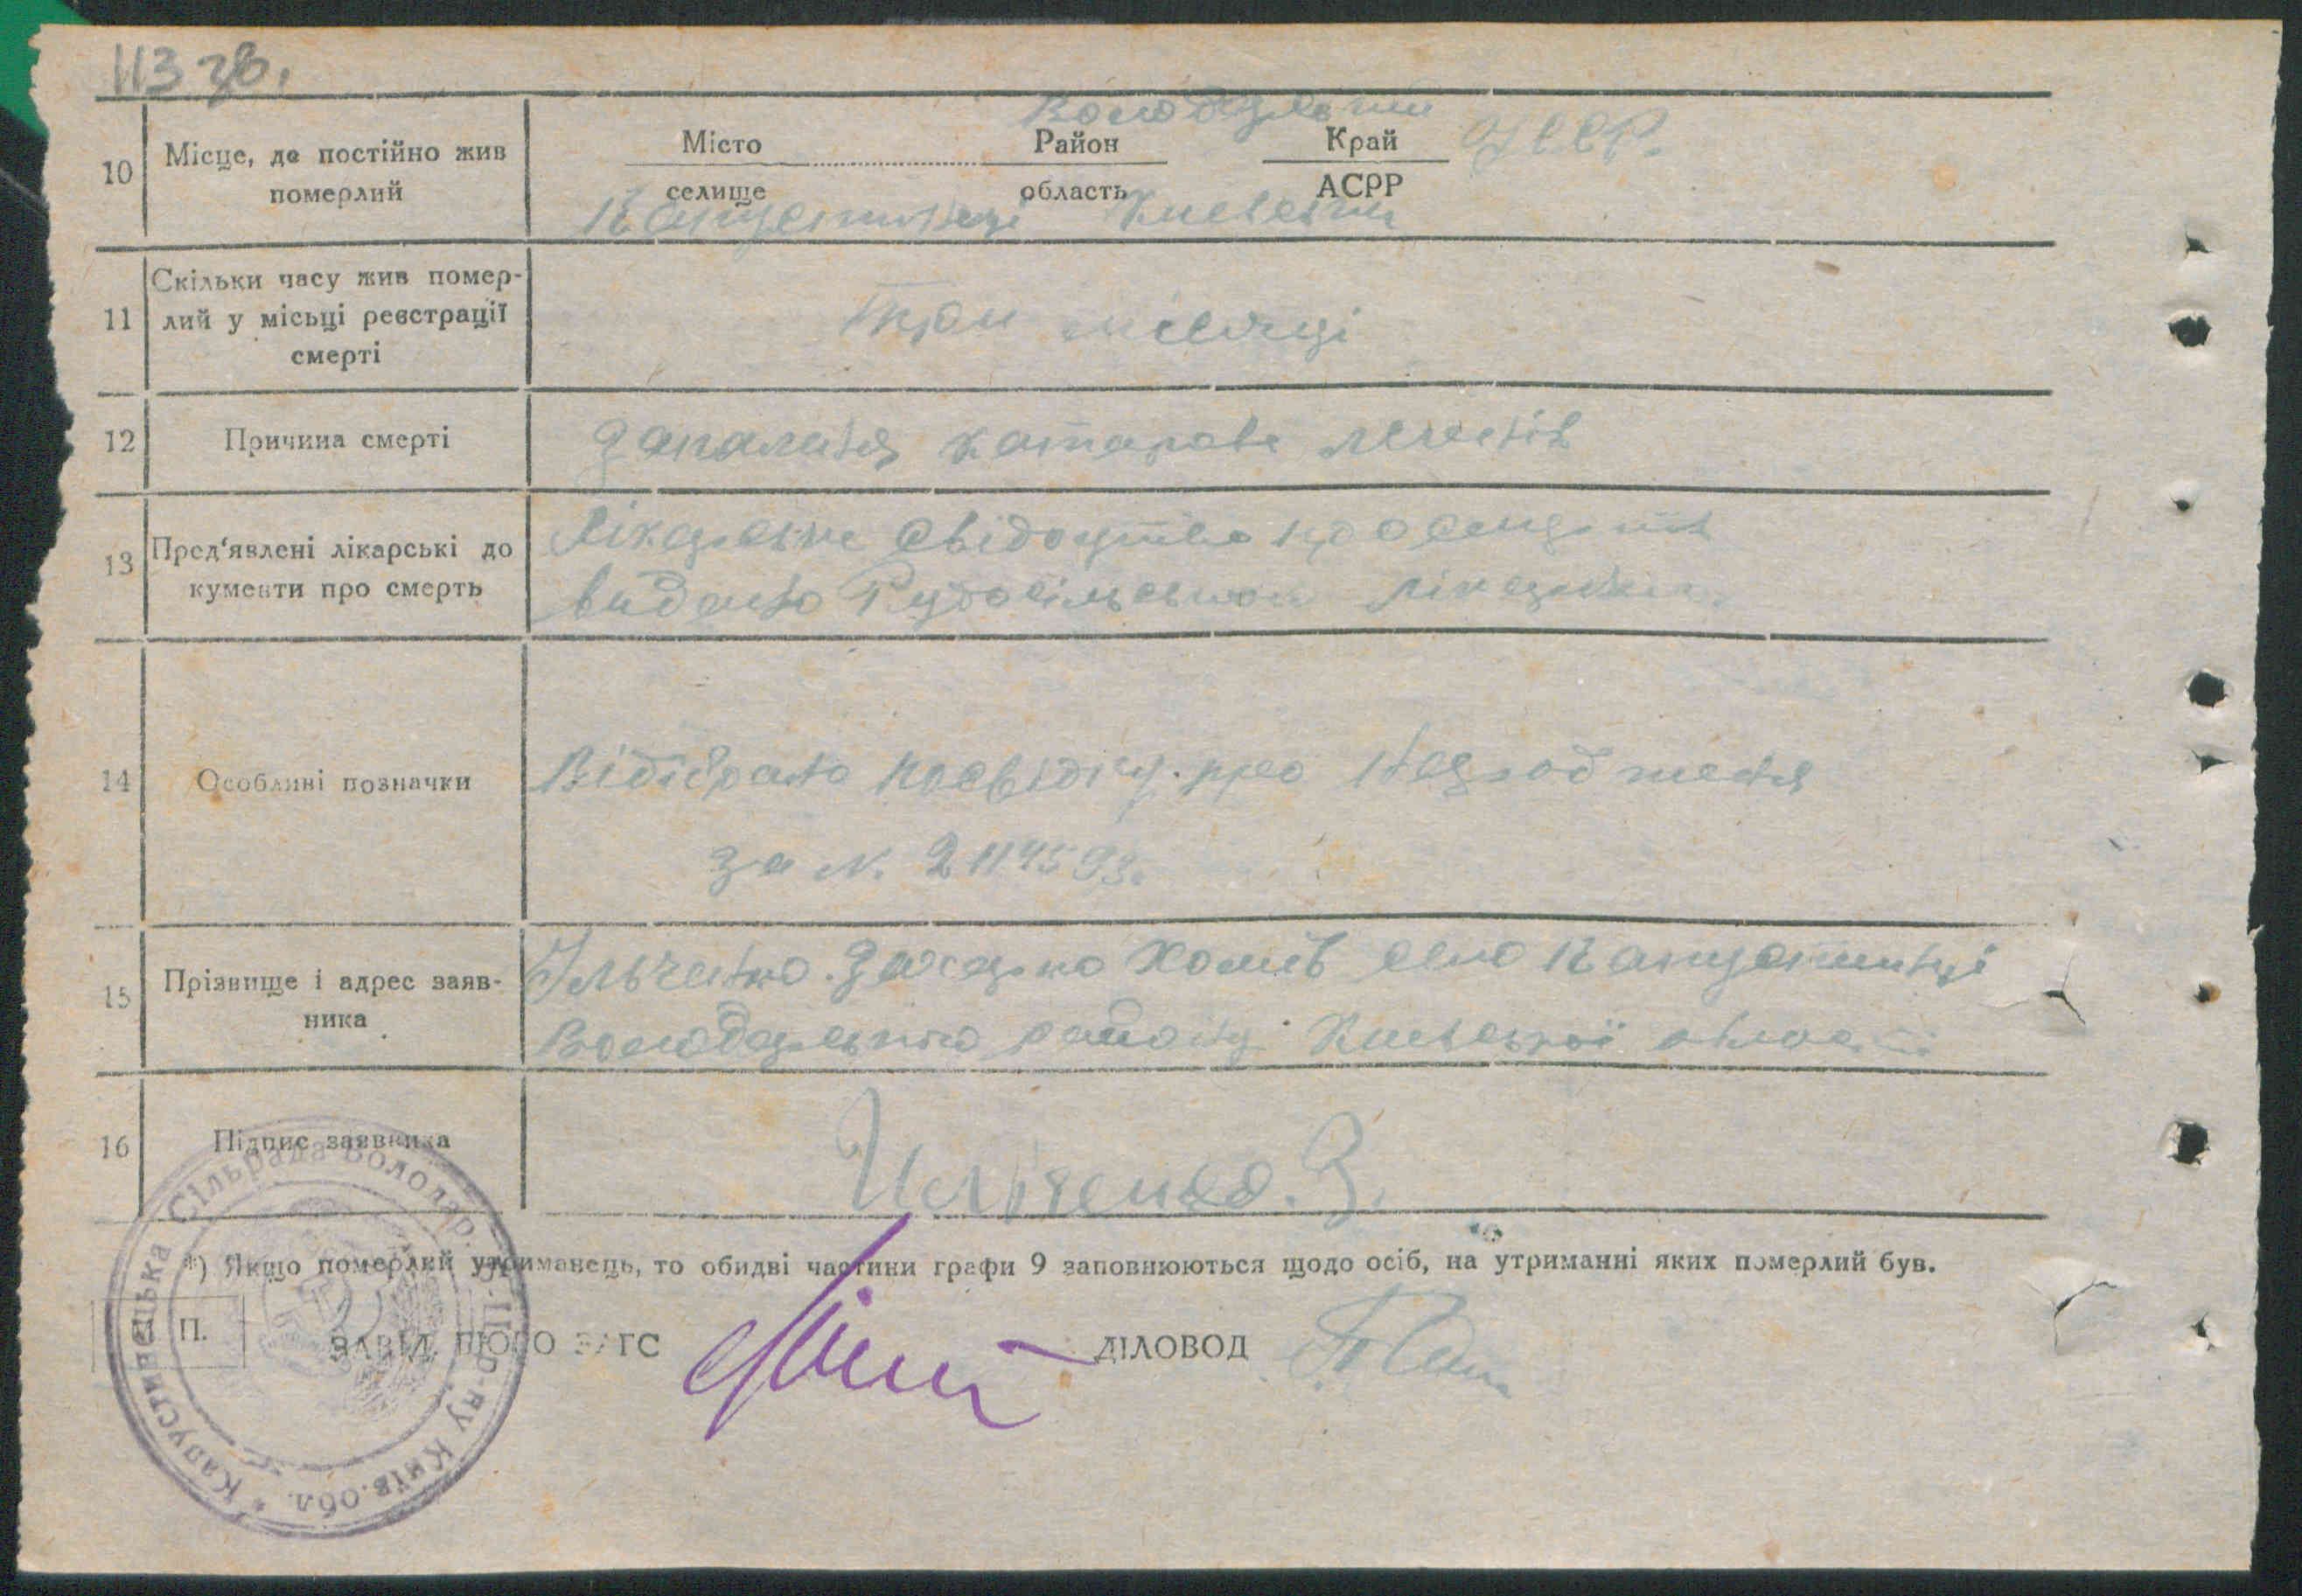 113 зв.
Володарський
10 Місце, де постійно жив померлий Місто селище Район область Край АСРР УССР.
Капустинці Київська
11 Скільки часу жив помер-
лий у місьці реєстрації
смерті
Три місяці
12 Причина смерті Запалення катарове легенів
13 Пред'явлені лікарські до
кументи про смерть
Лікарське свідоцтво про смерть
видано Рудосільською лікарнею
14 Особливі позначки Відібрано посвідку про народження
за N. 2114593.
15 Прізвище і адрес заяв-
ника
Ільченко Захарко Хомів село Капустинці
Володарського району Київської області
16 Підпис заявника Ильченко. З.
*) Якщо померлий утриманець, то обидві частини графи 9 заповнюються щодо осіб, на утриманні яких померлий був.
П. ЗАВІД. БЮРО ЗАГС ДІЛОВОД
* Капустинецька Сільрада Володар. р-ну Київ. обл.